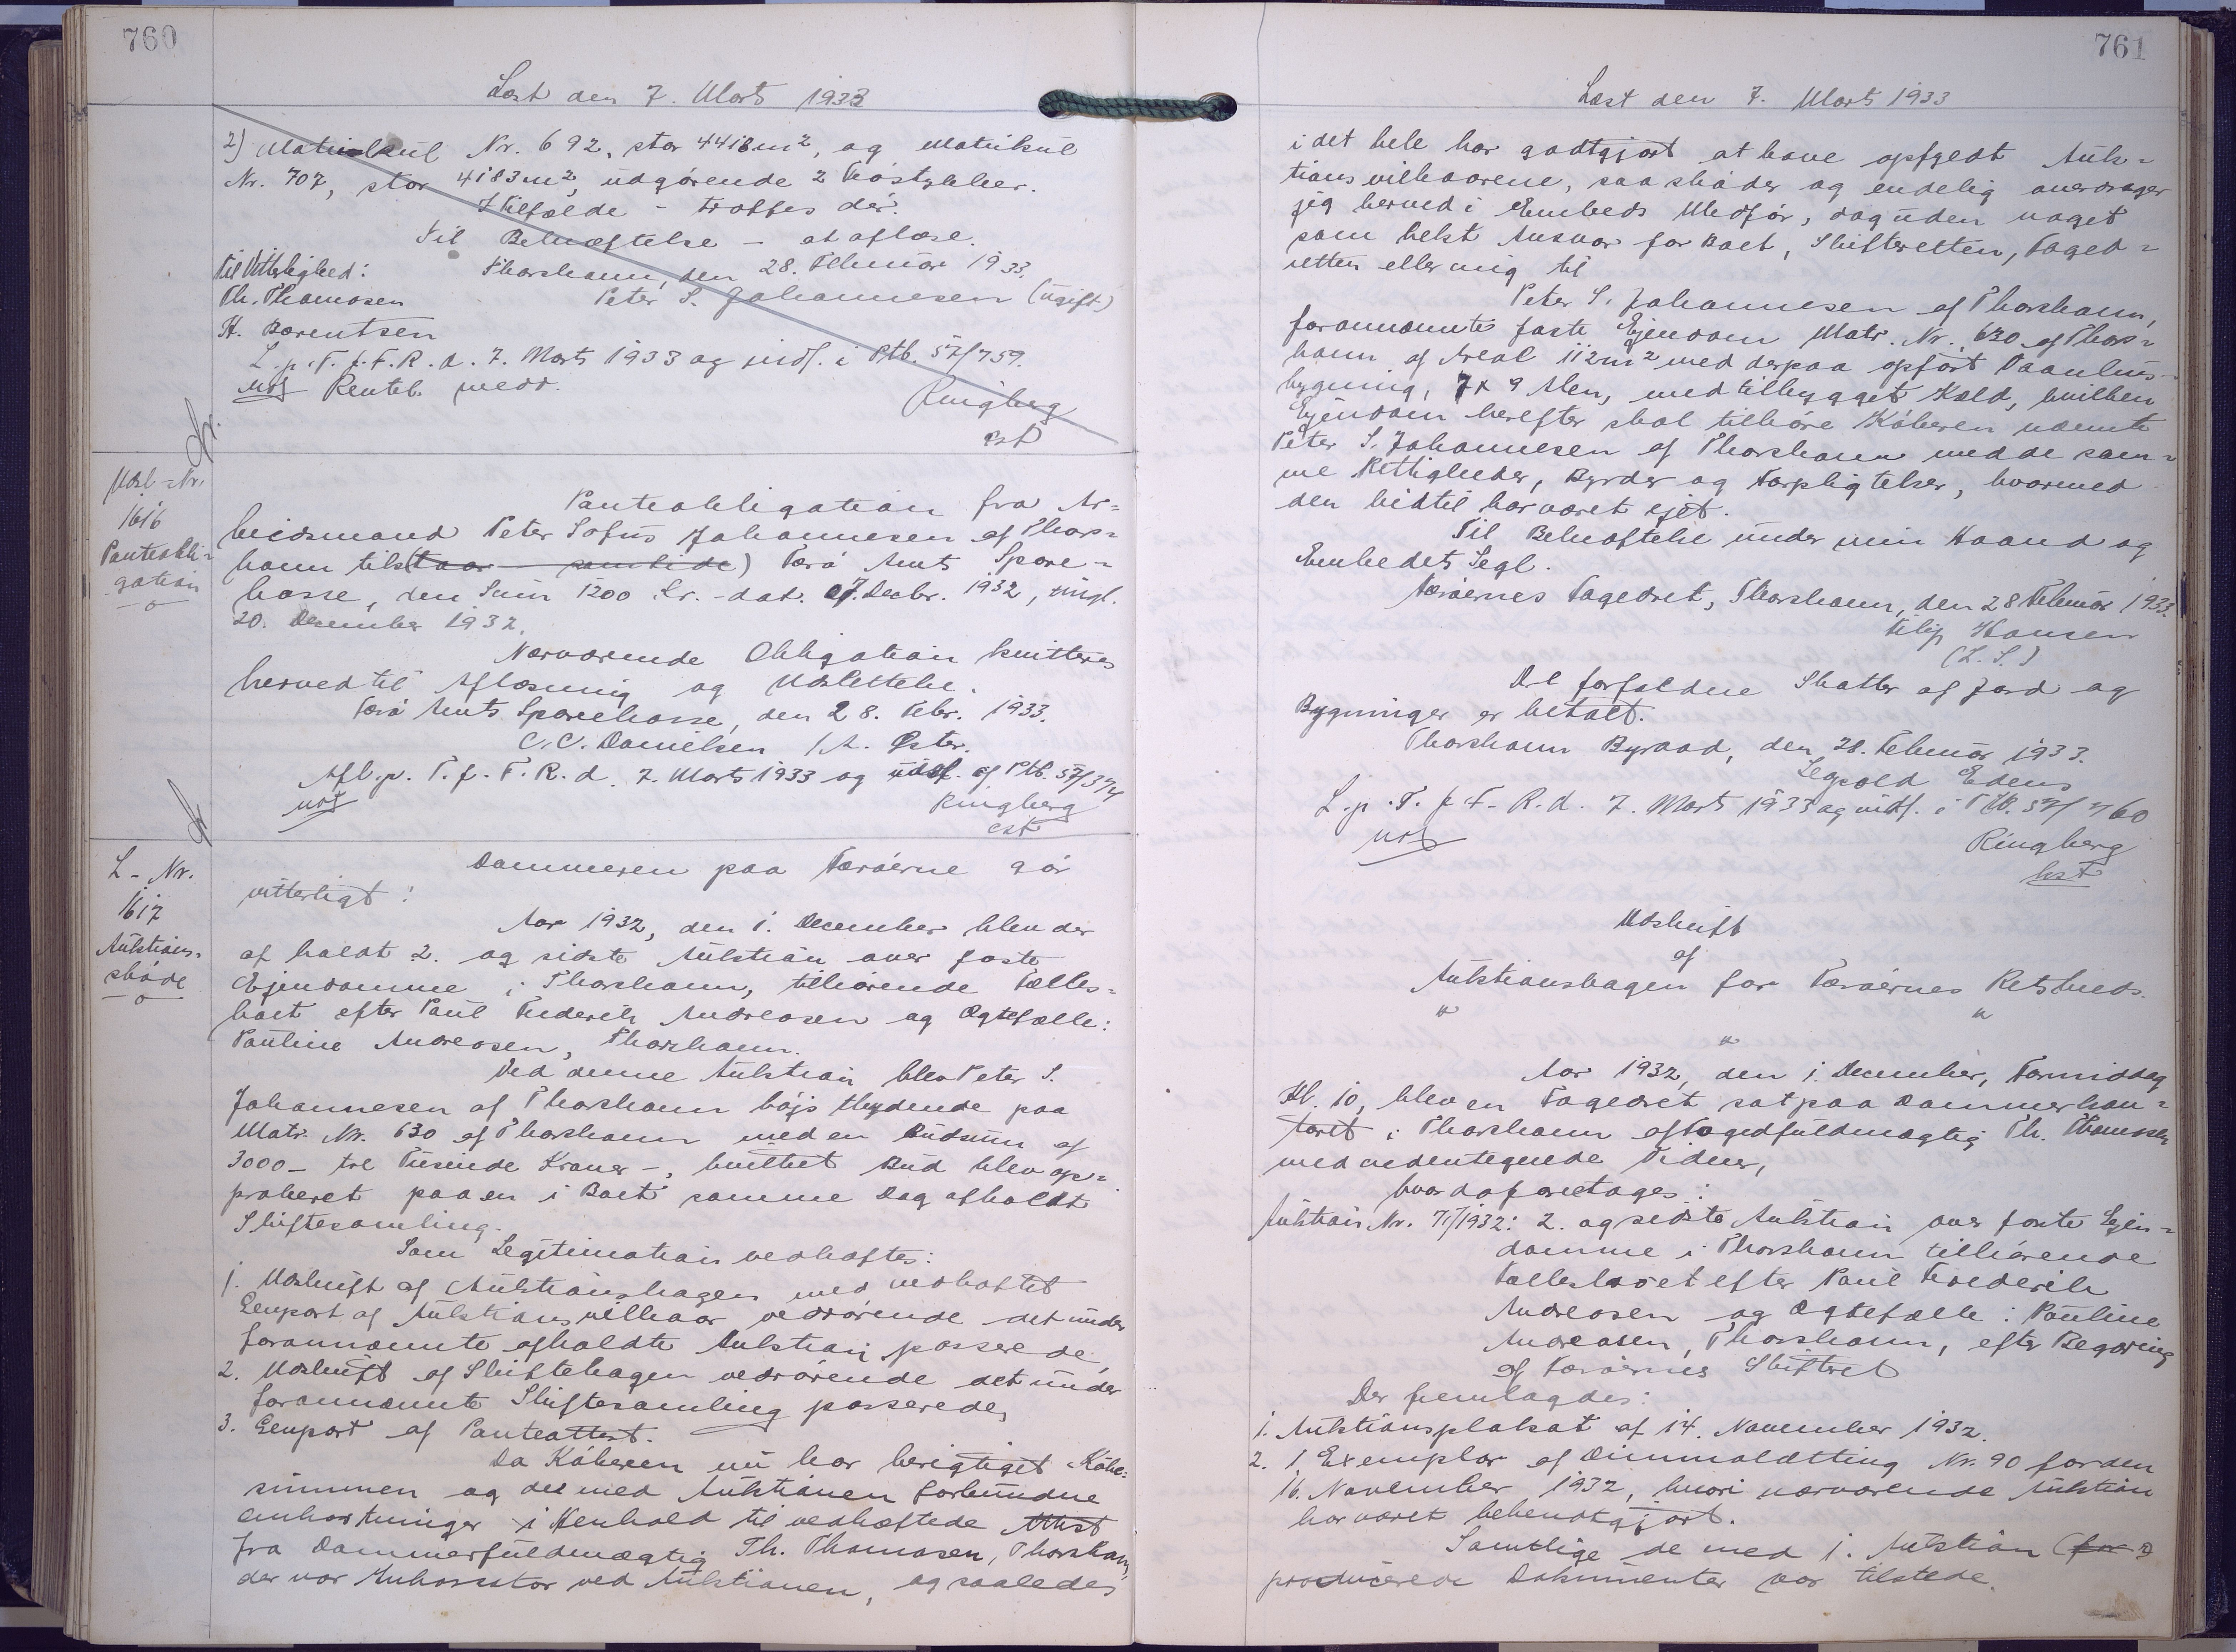 760
Læst den 7. Marts 1933
2) Matrikul Nr. 692, stor 4418 m², og Matrikul
Nr. 707, stor 4183 m², udgørende 2 Trøstykker.
I tilfælde - træffes dér.
Til Bekræftelse - at aflæse.
Til Vitterlighed: Thorshavn, den 28. Februar 1933.
Th. Thomasen Peter S. Johannesen (ugift)
H. Barentsen
L.p.T.f.F.R.d. 7. Marts 1933 og indf. i Ptb. 57/759.
Renteb. vedr.
Ringberg
cst
Udsl-Nr.
1616
Panteobli=
gation
Panteobligation fra Ar=
beidsmand Peter Sofus Johannesen af Thors=
havn til Færø Amts Spare=
kasse, den Sum 1200 Kr. - dat. 17. Decbr. 1932, tingl.
20. December 1932.
Nærværende Obligation kvitteres
herved til Aflæsning og Udslettelse.
Færø Amts Sparekasse, den 28. Febr. 1933.
C.C. Danielsen / A. Øster.
Afl.p.T.f.F.R.d. 7. Marts 1933 og udsl. af Ptb. 57/374
Ringberg
cst
L-Nr.
1617
Auktions=
skøde
Dommeren paa Færøerne gør
vitterligt:
Aar 1932, den 1. December blev der
afholdt 2. og sidste Auktion over faste
Ejendomme i Thorshavn, tilhørende Fælles=
boet efter Paul Frederik Andreasen og Ægtefælle:
Pauline Andreasen, Thorshavn.
Ved denne Auktion blev Peter S.
Johannesen af Thorshavn højstbydende paa
Matr. Nr. 630 af Thorshavn med en Budsum af
3000 - tre Tusinde Kroner -, hvilket Bud blev ap=
proberet paa en i Boet samme Dag afholdt
Skiftesamling.
Som Legitimation vedhæftes:
1. Udskrift af Auktionsbogen med vedhæftet
Genpart af Auktionsvilkaar vedrørende det under
forannævnte afholdte Auktion passerede,
2. Udskrift af Skiftebogen vedrørende det under
forannævnte Skiftesamling passerede,
3. Genpart af Panteattest.
Da Køberen nu har berigtiget Købe=
summen og de med Auktionen forbundne
Omkostninger i Henhold til vedhæftede Attest
fra Dommerfuldmægtig Th. Thomasen, Thorshavn,
der var Inkassator ved Auktionen, og saaledes
761
Læst den 7. Marts 1933
i det hele har godtgjort at have opfyldt Auk=
tionsvilkaarene, saa skøder og endelig overdrager
jeg herved i Embeds Medfør, dog uden noget
som helst Ansvar for Boet, Skifteretten, Foged=
retten eller mig til
Peter S. Johannesen af Thorshavn,
forannævnte faste Ejendom Matr. Nr. 630 af Thors=
havn af Areal 112 m² med derpaa opført Vaanhus=
bygning, 7 x 9 Alen, med tilbygget Kæld, hvilken
Ejendom herefter skal tilhøre Køberen nævnte
Peter S. Johannesen af Thorshavn med de sam=
me Rettigheder, Byrder og Forpligtelser, hvormed
den hidtil har været ejet.
Til Bekræftelse under min Haand og
Embedets Segl.
Færøernes Fogedret, Thorshavn, den 28 Februar 1933.
Filip Hansen
(L.S.)
De forfaldne Skatter af Jord og
Bygninger er betalt.
Thorshavn Byraad, den 28. Februar 1933.
Legpold Edens
L.p.T.f.F.R.d. 7. Marts 1933 og indf. i Ptb. 57/760
Ringberg
cst
Udskrift
af
Auktionsbogen for Færøernes Retskreds.
" "
"
Aar 1932, den 1. December, Formiddag
Kl. 10, blev en Fogedret sat paa Dommerkon=
toret i Thorshavn af Fogedfuldmægtig Th. Thomasen
med undertegnede Vidner,
hvor da foretages:
Auktion Nr. 71/1932: 2. og sidste Auktion over faste Ejen=
domme i Thorshavn tilhørende
Fællesboet efter Paul Frederik
Andreasen og Ægtefælle: Pauline
Andreasen, Thorshavn, efter Begæring
af Færøernes Skifteret
Der fremlagdes:
1. Auktionsplakat af 14. November 1932.
2. 1 Exemplar af Dimmalætting Nr. 90 for den
16. November 1932, hvori nærværende Auktion
har været bekendtgjort.
Samtlige de med 1. Auktion
producerede Dokumenter var tilstede.